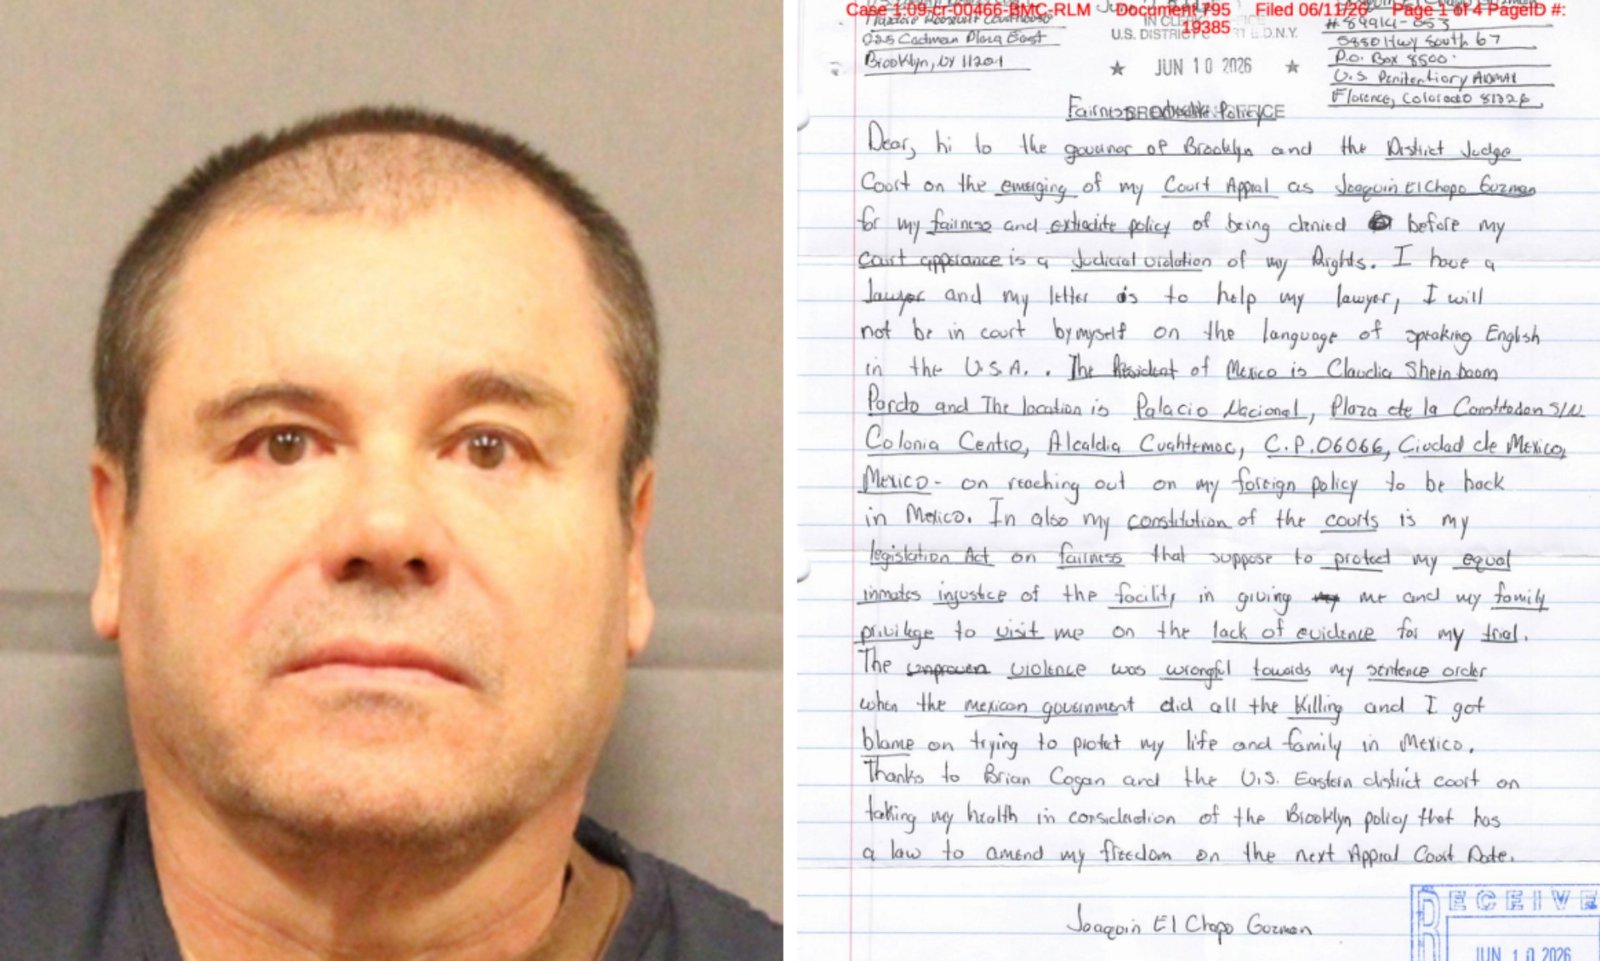 Case 1:09-cr-00466-BMC-RLM Document 795 Filed 06/11/26 Page 1 of 4 PageID #: 19385
Theodore Roosevelt Courthouse
225 Cadman Plaza East
Brooklyn, NY 11201
IN CLERK OFFICE
U.S. DISTRICT E.D.N.Y.
★ JUN 10 2026 ★
BROOKLYN OFFICE
#89914-053
5880 Hwy South 67
P.O. Box 8500
U.S Penitentiary ADMAX
Florence, Colorado 81226
Fairness Policy
Dear, hi to the govenor of Brooklyn and the District Judge
Coort on the emerging of my Court Appral as Joaquin El Chapo Guzman
for my fairness and extradite policy of being denied before my
court apperance is a Judicial violation of my Rights. I have a
lawyer and my letter is to help my lawyer, I will
not be in court bymyself on the language of speaking English
in the U.S.A. . The President of Mexico is Claudia Sheinbaum
Pardo and The location is Palacio Nacional, Plaza de la Constitucion S/N
Colonia Centro, Alcaldia Cuahtemoc, C.P.06066, Ciudad de Mexico,
Mexico - on reaching out on my foreign policy to be back
in Mexico. In also my constitution of the courts is my
legislation Act on fairness that suppose to protect my equal
inmates injustice of the facility in giving me and my family
privilege to visit me on the lack of evidence for my trial.
The unproven violence was wrongful towards my sentence order
when the mexican government did all the killing and I got
blame on trying to protect my life and family in Mexico.
Thanks to Brian Cogan and the U.S. Eastern district coort on
taking my health in consideration of the Brooklyn policy that has
a law to amend my freedom on the next Appral Coort Date.
Joaquin El Chapo Guzman
RECEIVE
JUN 10 2026